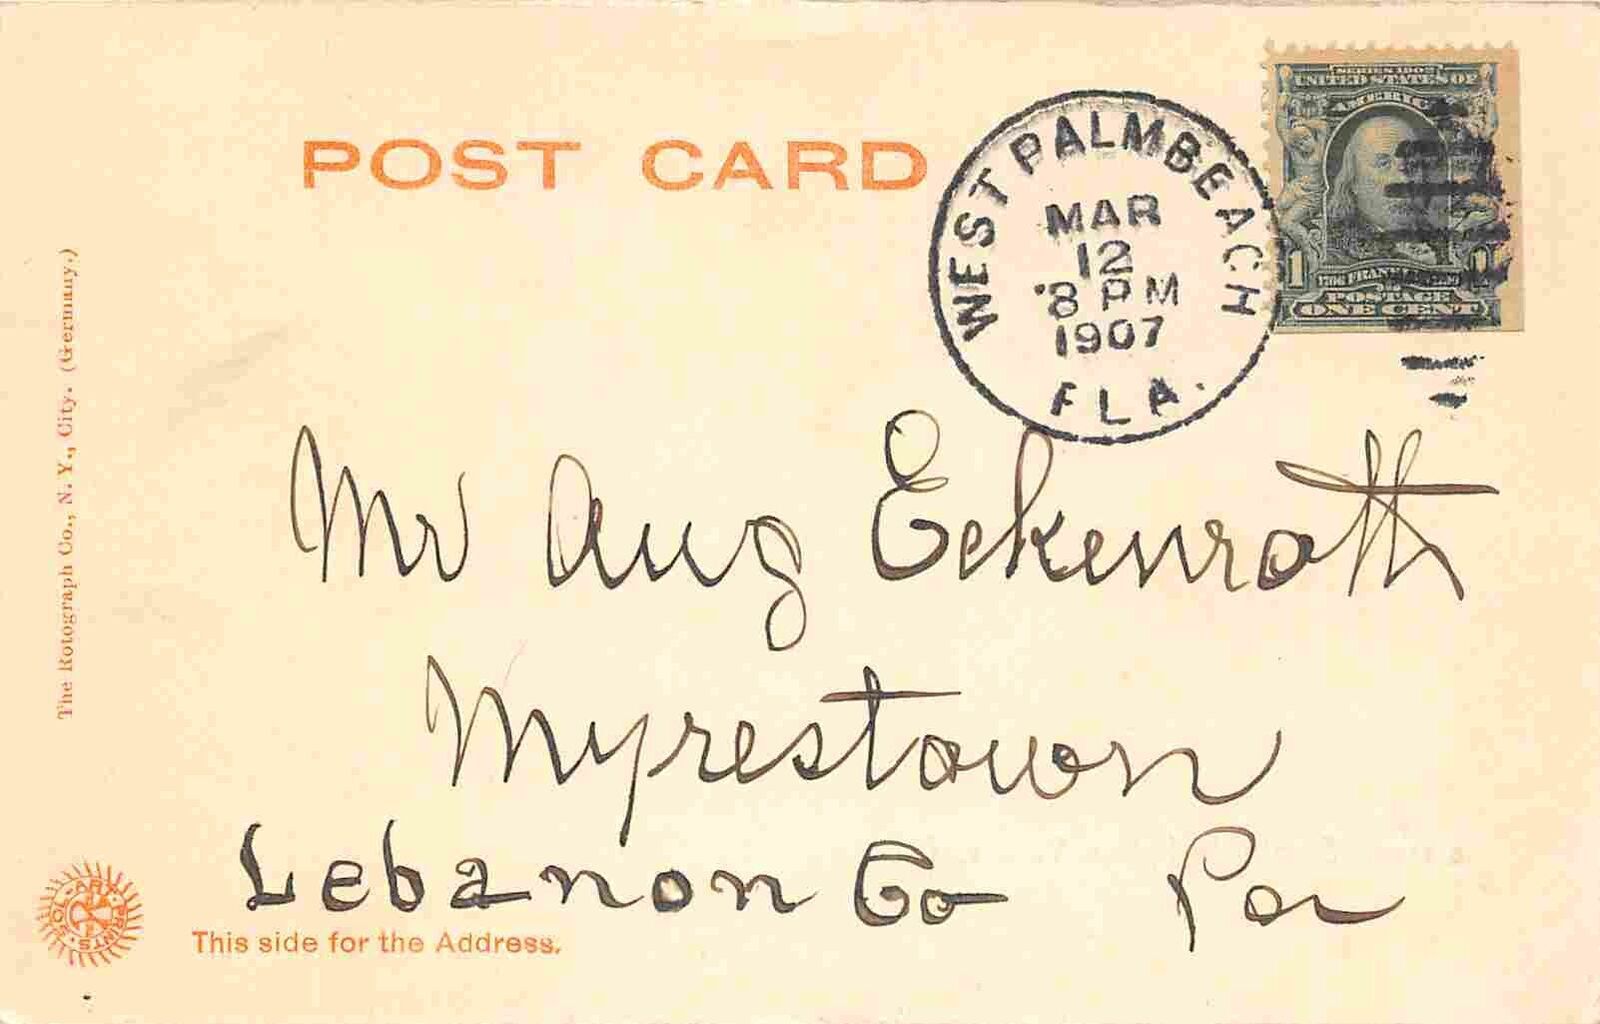 POST CARD
WEST PALM BEACH
MAR
12
8 PM
1907
FLA.
SERIES 1902
UNITED STATES OF
AMERICA
1 1
1706 FRANKLIN 1790
POSTAGE
ONE CENT
The Rotograph Co., N. Y., City. (Germany.)
Mr Aug Eckenroth
Myrestown
Lebanon Co Pa
SOL-ART PRINTS
This side for the Address.